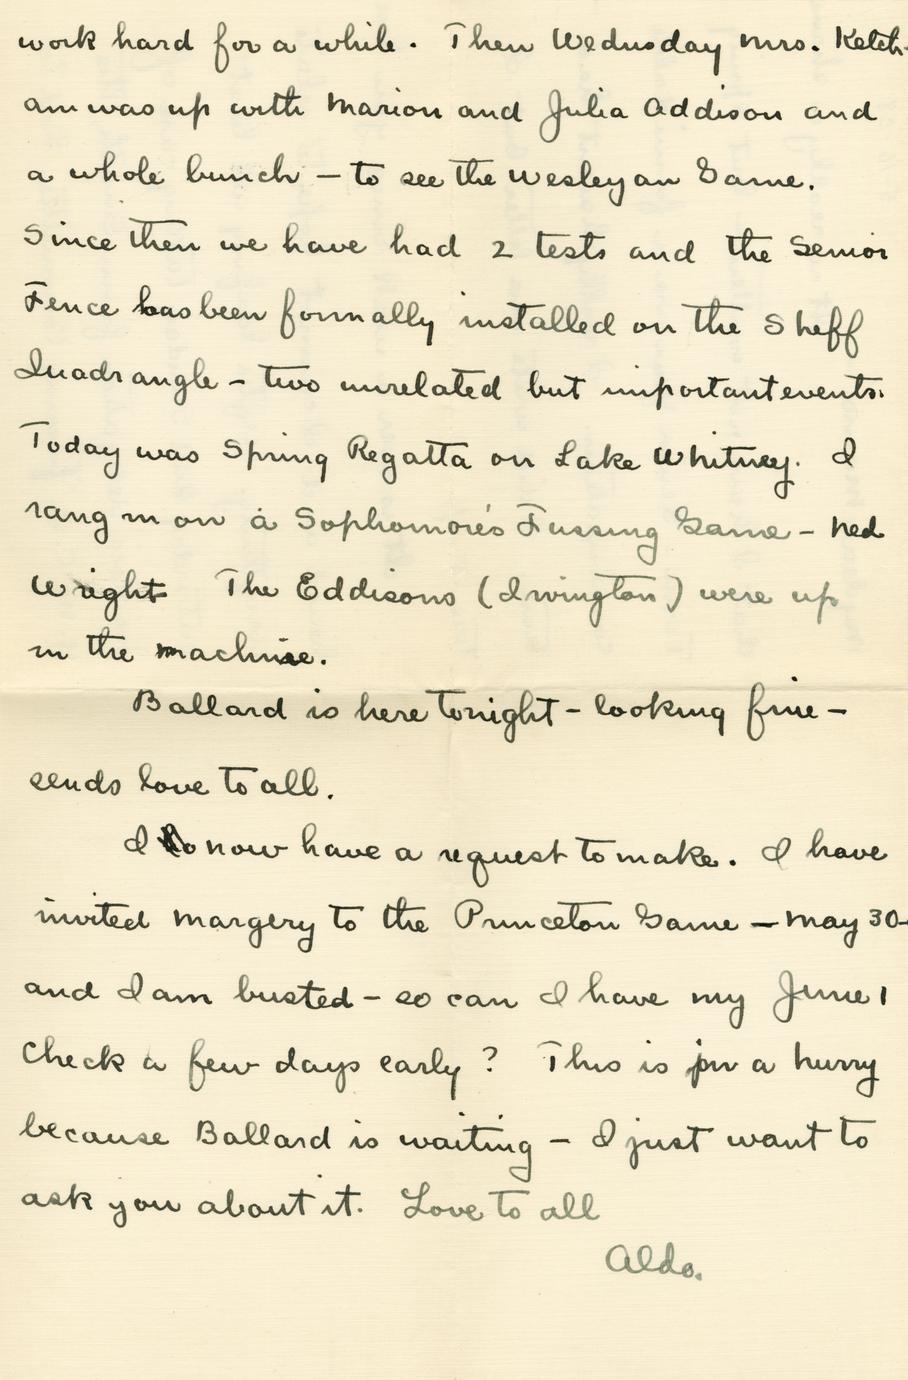 work hard for a while. Then Wednesday Mrs. Ketch-
am was up with Marion and Julia Addison and
a whole bunch – to see the Wesleyan Game.
Since then we have had 2 tests and the Senior
Fence has been formally installed on the Sheff
Quadrangle – two unrelated but important events.
Today was Spring Regatta on Lake Whitney. I
rang in on a Sophomore's Fussing Game – Ned
Wright The Eddisons (Irvington) were up
in the machine.
Ballard is here tonight – looking fine –
sends love to all.
I now have a request to make. I have
invited Margery to the Princeton Game – May 30–
and I am busted – so can I have my June 1
Check a few days early? This is in a hurry
because Ballard is waiting – I just want to
ask you about it. Love to all
Aldo.